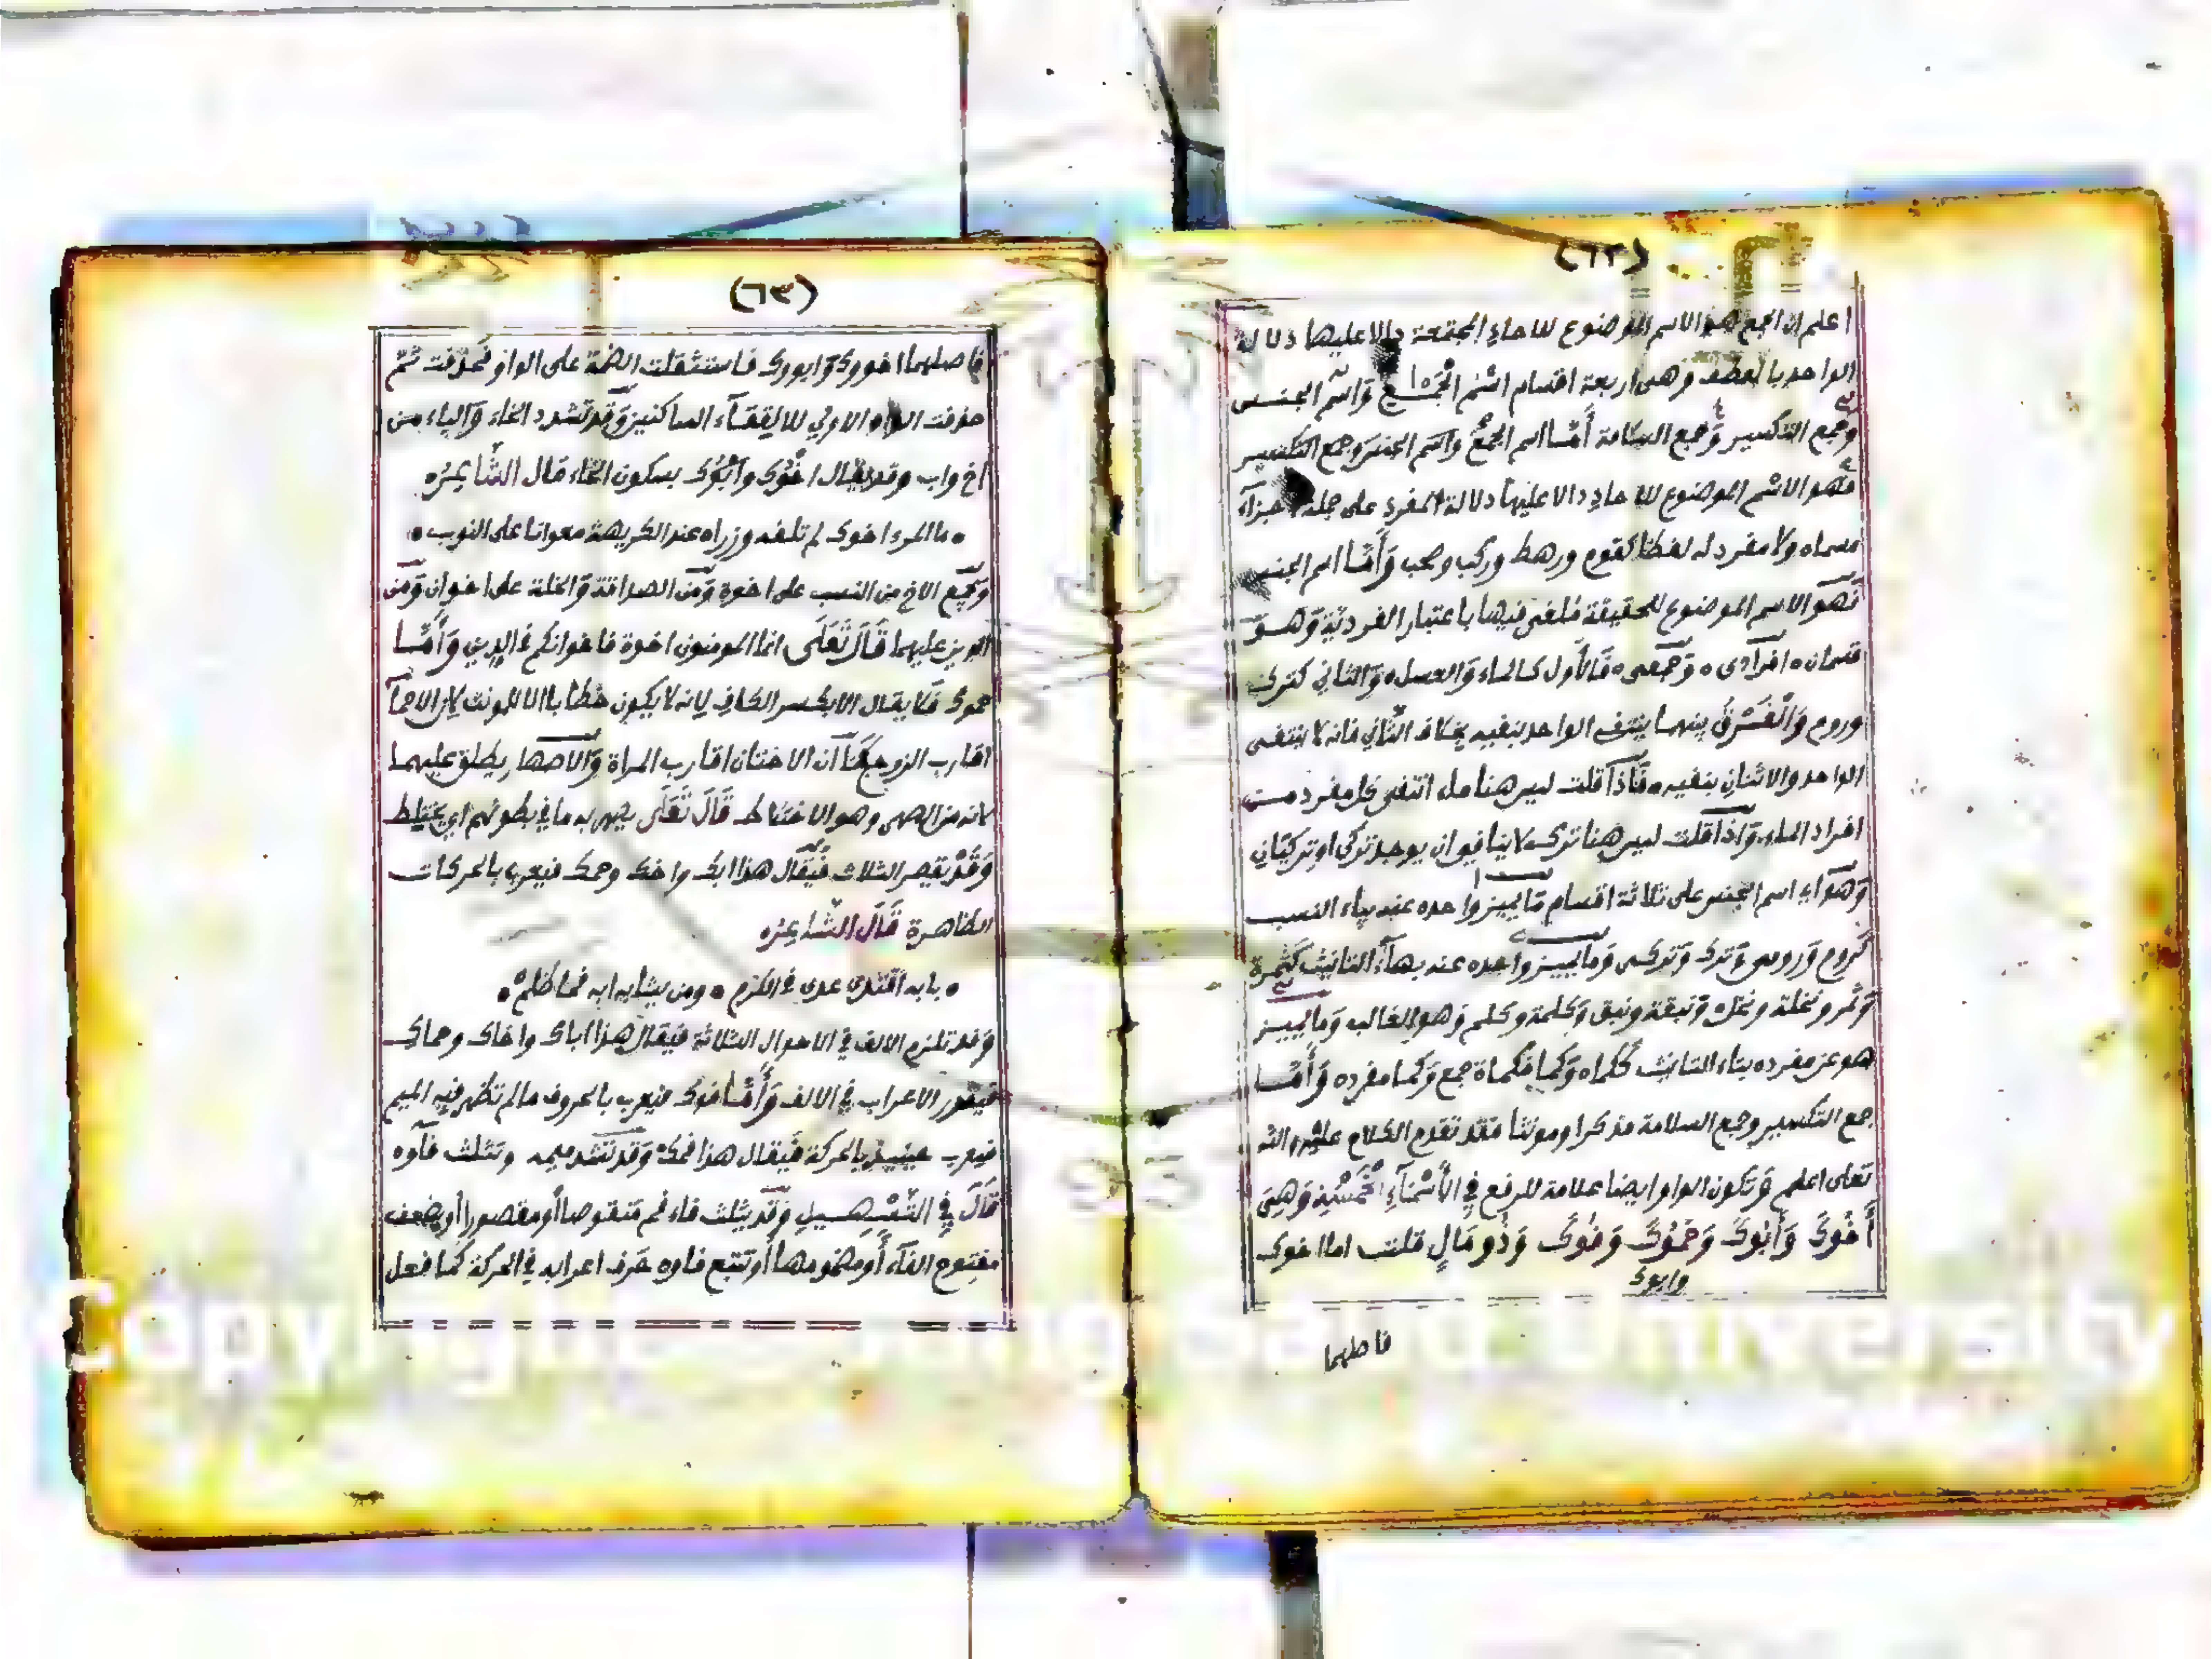 (٦٢)
اعلم ان الجمع هو الاسم الموضوع للاحاد المجتمعة دالا عليها دلالة
الواحد بالعطف وهى اربعة اقسام اسْم الجَمْع وَاسْم الجنس
وجمع التكسير وَجمع السلامة أمّا اسم الجمع واسم الجنس وجمع التكسير
فهو الاسْم الموضوع للاحاد دالا عليها دلالة المفرد على جملة اجزآء
مسماه ولا مفرد له لفظا كقوم ورهط وركب وصحب وَأَمّا اسم الجنس
فَهو الاسم الموضوع للحقيقة ملغى فيها باعتبار الفردية وَهو
قسمان افرآدى وَجمعى فَالأول كالماء وَالعسل وَالثانى كترك
وروم وَالْفَرْقُ بينهما ينتفى الواحد بنفيه بخلاف الثَّانى فانه لا ينتفى
الواحد والاثنان بنفيه فَاذَا قلت ليس هنا ماء انتفى كل مفرد من
افراد الماء وَاذَا قلت ليس هنا ترك لا ينافى ان يوجد تركى او تركيان
وَهو اى اسم الجنس على ثلاثة اقسام مَا يميز واحده عنه بياء النسب
كَروم وَرومى وَترك وَتركى وَما يميز واحده عنه بهآء التانيث كَثمرة
وَثمر ونخلة ونخل وَنبقة ونبق وَكلمة وكلم وَهو الغالب وَما يميز
هو عن مفرده بتاء التانيث ككماه وَكما فكماة جمع وَكما مفرده وَأَمّا
جمع التكسير وجمع السلامة مذكرا ومونثا فقد تقدم الكلام عليه والله
تعالى اعلم وَتكون الواو ايضا علامة للرفع فِى الأَسْمَآءِ الْخَمْسَةِ وَهِىَ
أَخُوكَ وَأَبُوكَ وَحَمُوكَ وَفُوكَ وَذُو مَالٍ قلت اما اخوك
وابوك
فاصلهما
(٦٣)
فاصلهما اخووك وَابووك فاستثقلت الضمة على الواو فحذفت ثُمّ
حذفت الواو الاولى للالتقآء الساكنين وَقد تشدد الخاء وَالباء من
اخ واب وقد يقال اخْوُك وَابْوُك بسكون الخاء قال الشّاعِرُ
ما المرء اخوك لم تلفه وزراه عند الكريهة معوانا على النوب
وَيجمع الاخ من النسب على اخوة وَمن الصداقة وَالخلة على اخوان وَمن
الدين عليهما قَالَ تَعَلَى انما المومنون اخوة فاخوانكم فى الدين وَأَمّا
حموك فلا يقال الا بكسر الكاف لانه لا يكون خطابا الا للمونث لان الاحمآ
اقارب الزوج كَمَا ان الاختان اقارب المراة وَالاصهار يطلق عليهما
لانه من الصهر وهو الاختلاط قَالَ تَعَلَى يصهر به ما فى بطونهم اى يختلط
وَقَدْ تقصر الثلاث فيُقَال هذا ابك واخك وحمك فيعرب بالحركات
الظاهرة قَالَ الشّاعِرُ
بابه اقتدى عدى فى الكرم ومن يشابه ابه فما ظلمْ
وَقد تلزم الالف فى الاحوال الثلاثة فيقال هذا اباك واخاك وحماك
فيقدر الاعراب فى الالف وَأَمّا فوك فيعرب بالحروف مالم تظهر فيه الميم
فيعرب حينيذ بالحركة فيقال هذا فمك وَقد تشدد ميمه وتثلث فآوه
قَالَ فِى التَّسْهِيلِ وَقد يثلث فاء فم منقوصا أو مقصورا أو يضعف
مفتوح الفآء أو مضمومها أو تتبع فاوه حرف اعرابه فى الحركة كما فعل
Copyright © King Saud University